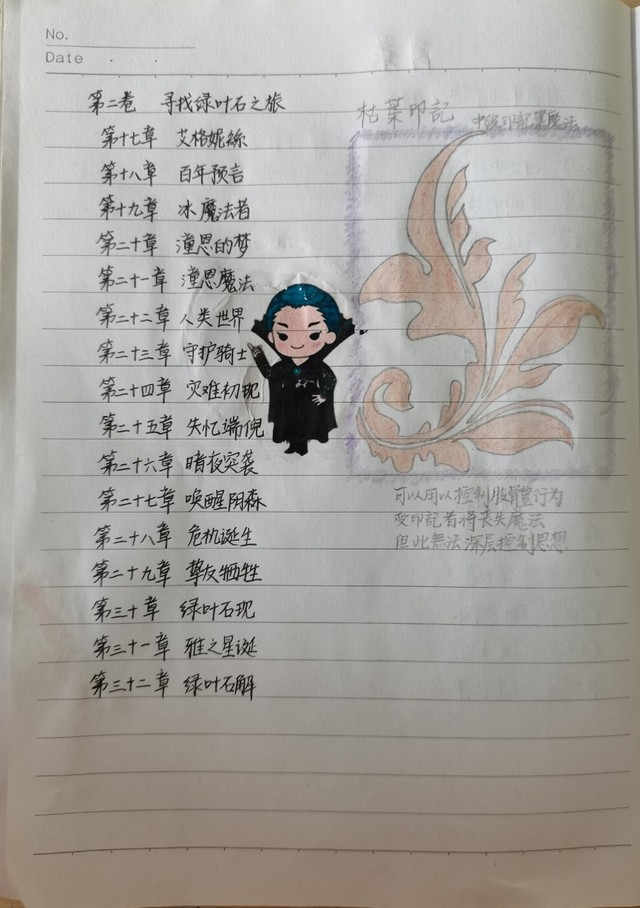 No.
Date
第二卷 寻找绿叶石之旅
第十七章 艾格妮絲
第十八章 百年预言
第十九章 冰魔法者
第二十章 潼恩的梦
第二十一章 潼恩魔法
第二十二章 人类世界
第二十三章 守护骑士
第二十四章 灾难初现
第二十五章 失忆端倪
第二十六章 暗夜突袭
第二十七章 唤醒阴森
第二十八章 危机诞生
第二十九章 挚友牺牲
第三十章 绿叶石现
第三十一章 雅之星诞
第三十二章 绿叶石解
枯葉印記
中級印記黑魔法
可以用以控制肢體行为
受印記者將丧失魔法
但此無法深层控制思想